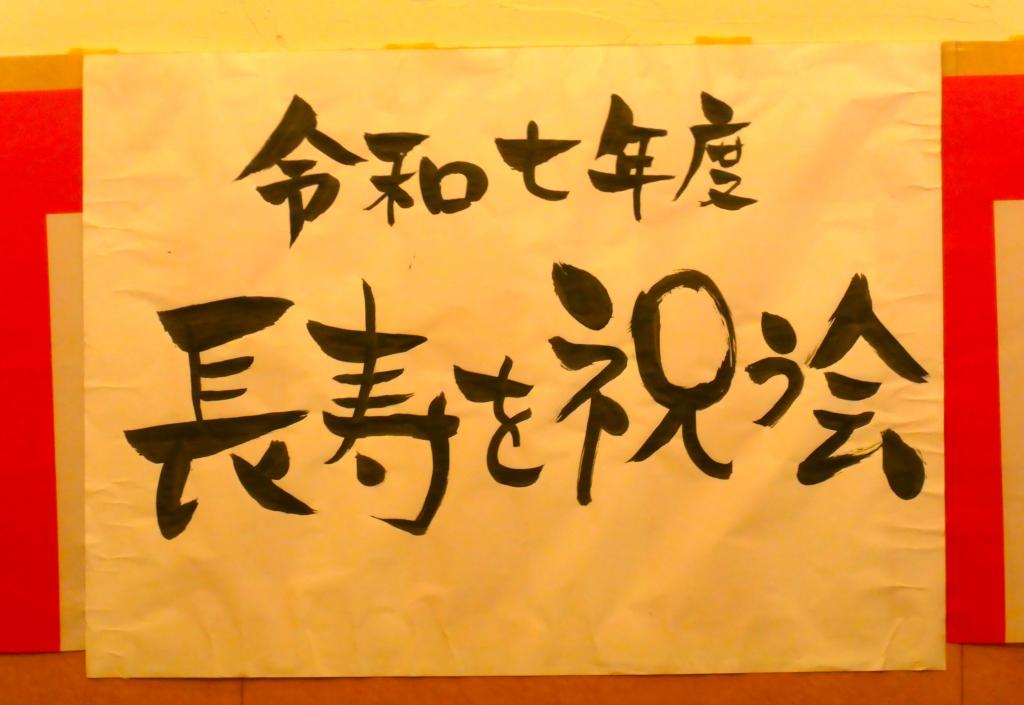 令和七年度
長寿を祝う会